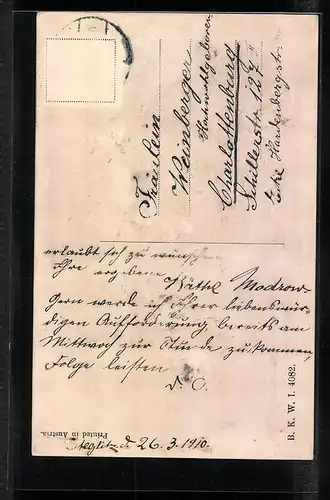 Fräulein
Weinberger
Hochwohlgeboren
Charlottenburg
Schillerstr. 127
Ecke Hardenbergstr.
erlaubt sich zu wünschen
Ihre ergebene
Käthel Modrow
Gern werde ich Ihrer liebenswür-
digen Aufforderung bereits am
Mittwoch zur Stunde zu kommen,
Folge leisten
d. O.
Steglitz d. 26.3.1910.
Printed in Austria.
B. K. W. I. 4082.